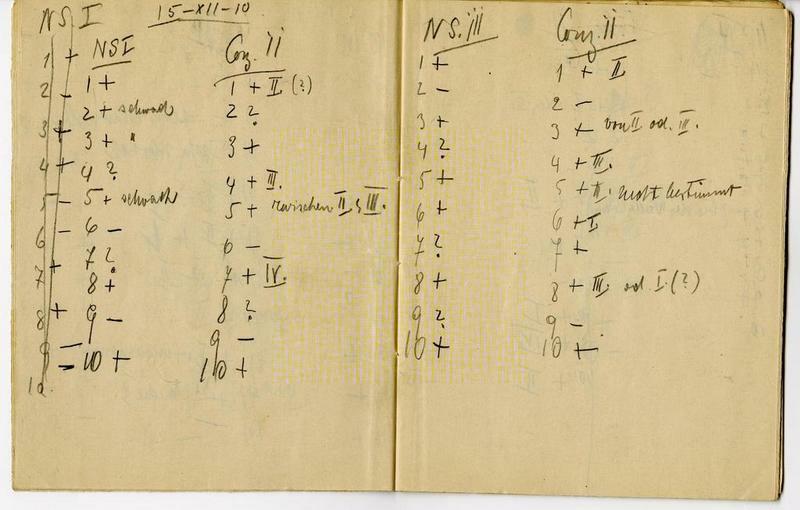 NS I
15-XII-10
1 +
2 -
3 +
4 +
5 -
6 -
7 +
8 +
9 -
10 -
NS I
1 +
2 + schwach
3 + "
4 ?
5 + schwach
6 -
7 ?
8 +
9 -
10 +
Conz. II
1 + II (?)
2 ?
3 +
4 + III.
5 + zwischen II & III.
6 -
7 + IV.
8 ?
9 -
10 +
NS. III
1 +
2 -
3 +
4 ?
5 +
6 +
7 ?
8 +
9 ?
10 +
Conz. II
1 + II
2 -
3 + von II od. III.
4 + III.
5 + II. nicht bestimmt
6 + I
7 +
8 + III. od. I. (?)
9 -
10 +